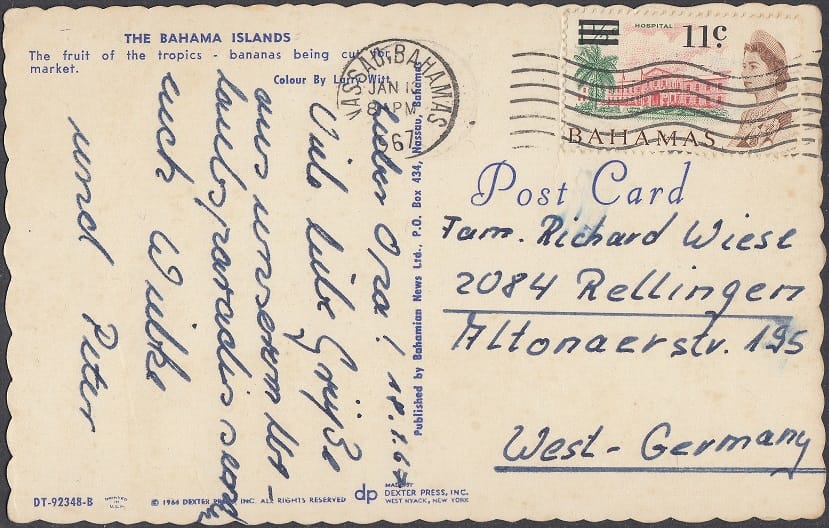 THE BAHAMA ISLANDS
The fruit of the tropics - bananas being cut for
market.
Colour By Larry Witt
NASSAU, BAHAMAS
JAN 1
8 PM
1967
HOSPITAL
11c
BAHAMAS
Post Card
Fam. Richard Wiese
2084 Rellingen
Altonaerstr. 195
West-Germany
18.1.67
Lieber Opa!
Viele liebe Grüße
aus unserem Ur-
laubsparadis
euch Wilke
und Peter
Published by Bahamian News Ltd., P.O. Box 434, Nassau, Bahamas
DT-92348-B
PRINTED IN U.S.A.
© 1964 DEXTER PRESS, INC. ALL RIGHTS RESERVED
dp
MADE BY
DEXTER PRESS, INC.
WEST NYACK, NEW YORK